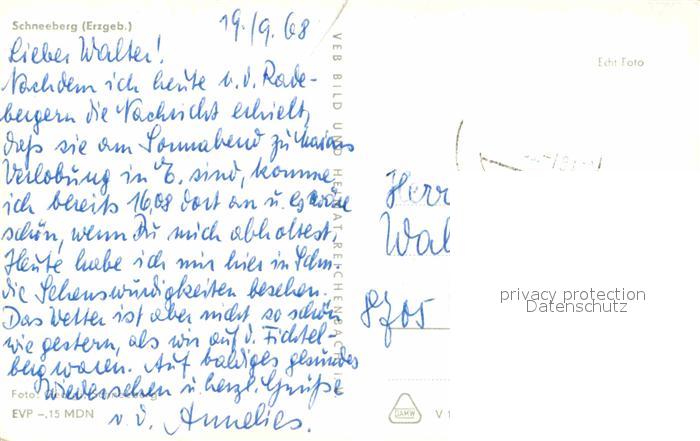 Schneeberg (Erzgeb.)
19./9.68
Lieber Walter!
Nachdem ich heute v. d. Rade-
bergern die Nachricht erhielt,
daß sie am Sonnabend zu
Verlobung in E. sind, komme
ich bereits 16,08 dort an u. es wäre
schön, wenn Du mich abholtest.
Heute habe ich mir hier in Schn.
die Sehenswürdigkeiten besehen.
Das Wetter ist aber nicht so schön
wie gestern, als wir auf d. Fichtel-
berg waren. Auf baldiges gesundes
Wiedersehen u. herzl. Grüße
v. d. Annelies.
Foto:
EVP -,15 MDN
VEB BILD UND HEIMAT REICHENBACH
Echt Foto
Herr
Wal
8705
privacy protection
Datenschutz
DAMW
V 1